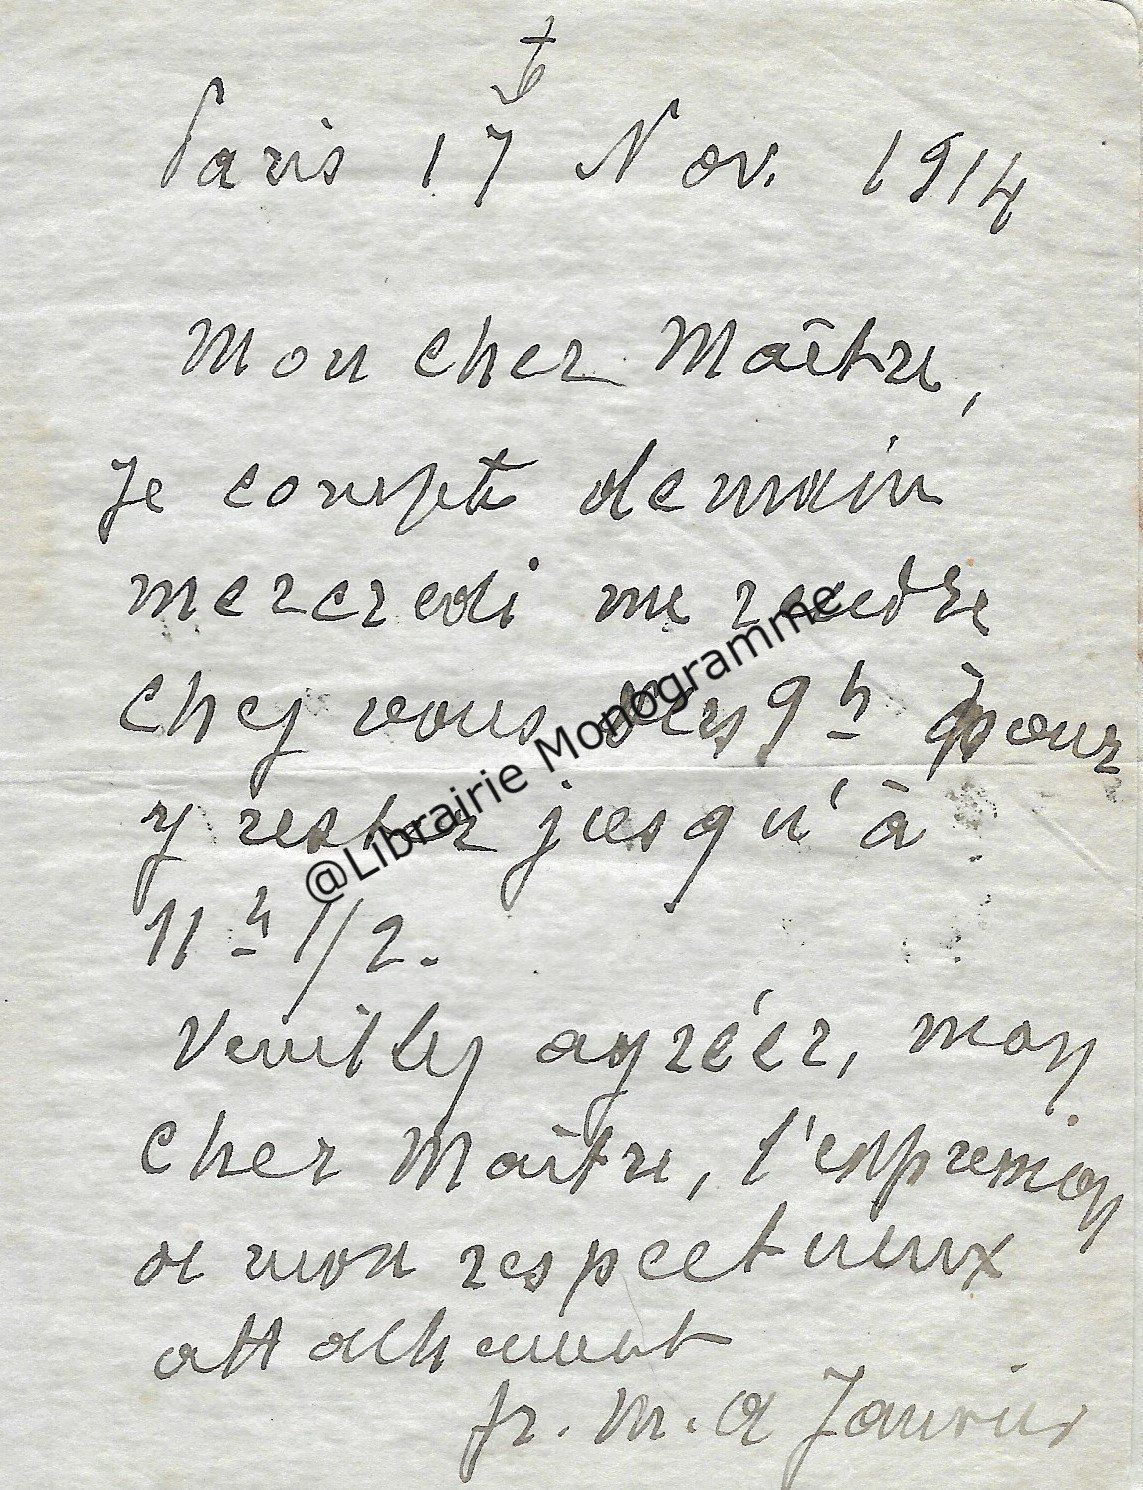 Paris 17 Nov. 1914
Mon cher Maître,
Je compte demain
mercredi me rendre
chez vous vers 9h pour
y rester jusqu'à
11h 1/2.
Veuillez agréer, mon
cher Maître, l'expression
de mon respectueux
attachement
fr. M. A Janvier
@Librairie Monogramme